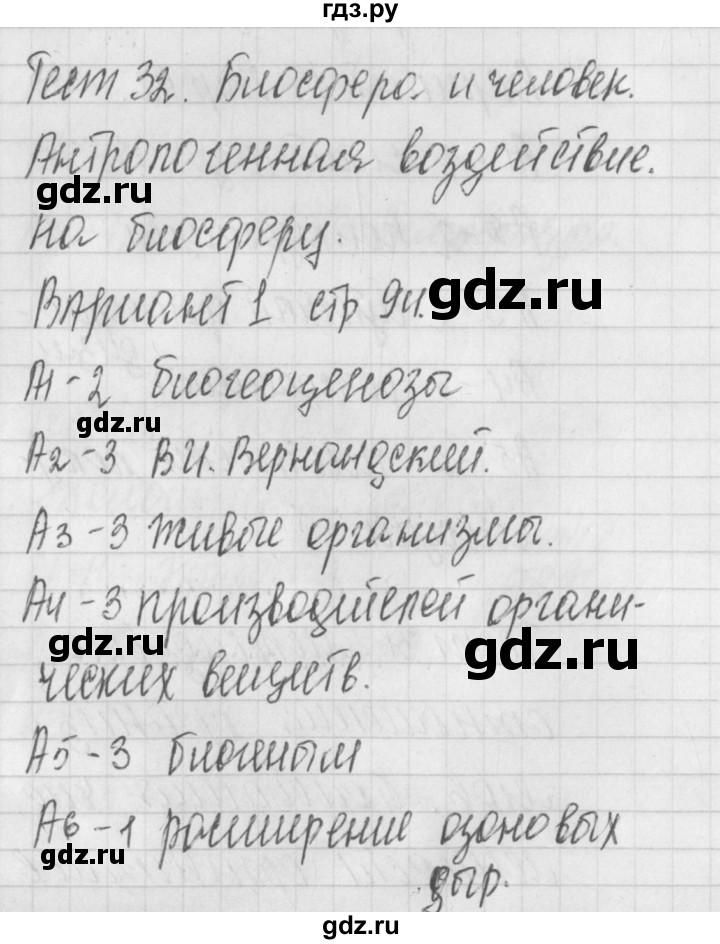 гдз.ру
Тест 32. Биосфера и человек.
Антропогенная воздействие.
gdz.ru
на биосферу.
gdz.ru
Вариант 1 стр 94.
А1-2 биогеоценозы
gdz.ru
А2-3 В.И. Вернандский.
А3-3 живые организмы.
А4-3 производителей органи-
gdz.ru
gdz.ru
ческих веществ.
А5-3 биогеным
А6-1 расширение озоновых
gdz.ru
дыр.
gdz.ru